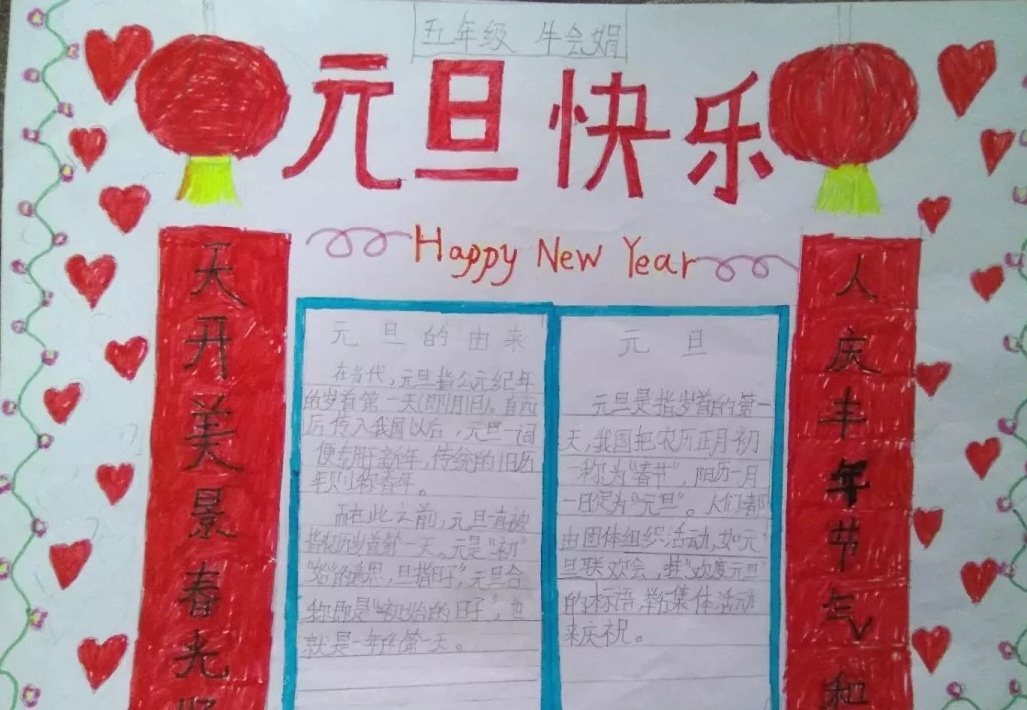 五年级 牛会娟
元旦快乐
Happy New Year
天开美景春光
人庆丰年节气和
元旦的由来
在当代，元旦指公元纪年
的岁首第一天(即1月1日)。自西
历传入我国以后，元旦一词
便专用于新年，传统的旧历
年则称春年。
而在此之前，元旦一直被
指农历岁首第一天。元是"初"
"始"的意思，旦指"日子"，元旦合
称即是"初始的日子"，也
就是一年的第一天。
元旦
元旦是指岁首的第一
天，我国把农历正月初
一称为"春节"，阳历一月
一日定为"元旦"。人们都
由团体组织活动，如元
旦联欢会，挂"欢度元旦"
的标语，举行集体活动
来庆祝。